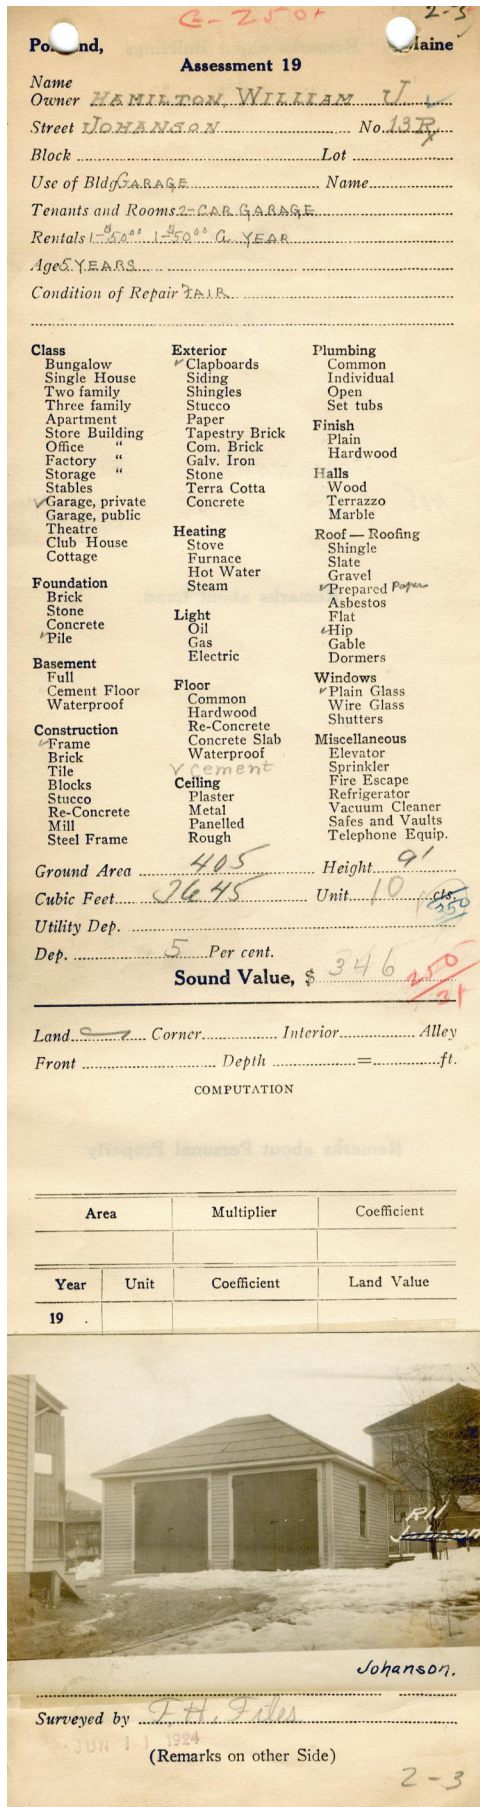 C-250+
2-3+
Po nd, Maine
Assessment 19
Name
Owner HAMILTON, WILLIAM J ✓
Street JOHANSON No. 13R
Block Lot
Use of Bldg GARAGE Name
Tenants and Rooms 2-CAR GARAGE
Rentals 1-$50⁰⁰ 1-$50⁰⁰ A YEAR
Age 5 YEARS
Condition of Repair FAIR
Class
Bungalow
Single House
Two family
Three family
Apartment
Store Building
Office "
Factory "
Storage "
Stables
✓Garage, private
Garage, public
Theatre
Club House
Cottage
Foundation
Brick
Stone
Concrete
✓Pile
Basement
Full
Cement Floor
Waterproof
Construction
✓Frame
Brick
Tile
Blocks
Stucco
Re-Concrete
Mill
Steel Frame
Exterior
✓Clapboards
Siding
Shingles
Stucco
Paper
Tapestry Brick
Com. Brick
Galv. Iron
Stone
Terra Cotta
Concrete
Heating
Stove
Furnace
Hot Water
Steam
Light
Oil
Gas
Electric
Floor
Common
Hardwood
Re-Concrete
Concrete Slab
Waterproof
✓ cement
Ceiling
Plaster
Metal
Panelled
Rough
Plumbing
Common
Individual
Open
Set tubs
Finish
Plain
Hardwood
Halls
Wood
Terrazzo
Marble
Roof — Roofing
Shingle
Slate
Gravel
✓Prepared Paper
Asbestos
Flat
✓Hip
Gable
Dormers
Windows
✓Plain Glass
Wire Glass
Shutters
Miscellaneous
Elevator
Sprinkler
Fire Escape
Refrigerator
Vacuum Cleaner
Safes and Vaults
Telephone Equip.
Ground Area 405 Height 9'
Cubic Feet 3645 Unit 10 cts.
350
Utility Dep.
Dep. 5 Per cent.
Sound Value, $ 346 250
Land Corner Interior Alley
Front Depth = ft.
COMPUTATION
Remarks about Personal Property
Area Multiplier Coefficient
Year Unit Coefficient Land Value
19 .
R11
Johnson
Johanson.
Surveyed by F. H. Files
JUN 11 1924
(Remarks on other Side)
2-3